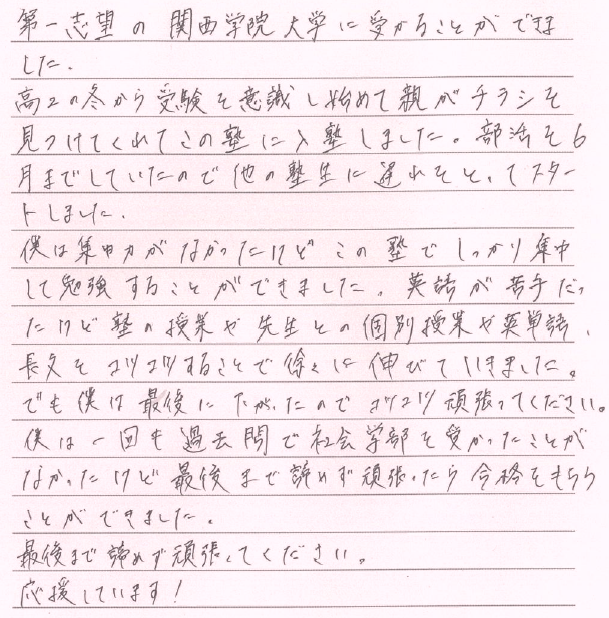 第一志望の関西学院大学に受かることができま
した.
高2の冬から受験を意識し始めて親がチラシを
見つけてくれてこの塾に入塾しました。部活を6
月までしていたので他の塾生に遅れをとってスター
トしました.
僕は集中力がなかったけどこの塾でしっかり集中
して勉強することができました。英語が苦手だっ
たけど塾の授業や先生との個別授業や英単語、
長文をコツコツすることで徐々に伸びていきました。
でも僕は最後に下がったのでコツコツ頑張ってください。
僕は一回も過去問で社会学部を受かったことが
なかったけど最後まで諦めず頑張ったら合格をもらう
ことができました。
最後まで諦めず頑張ってください。
応援しています!